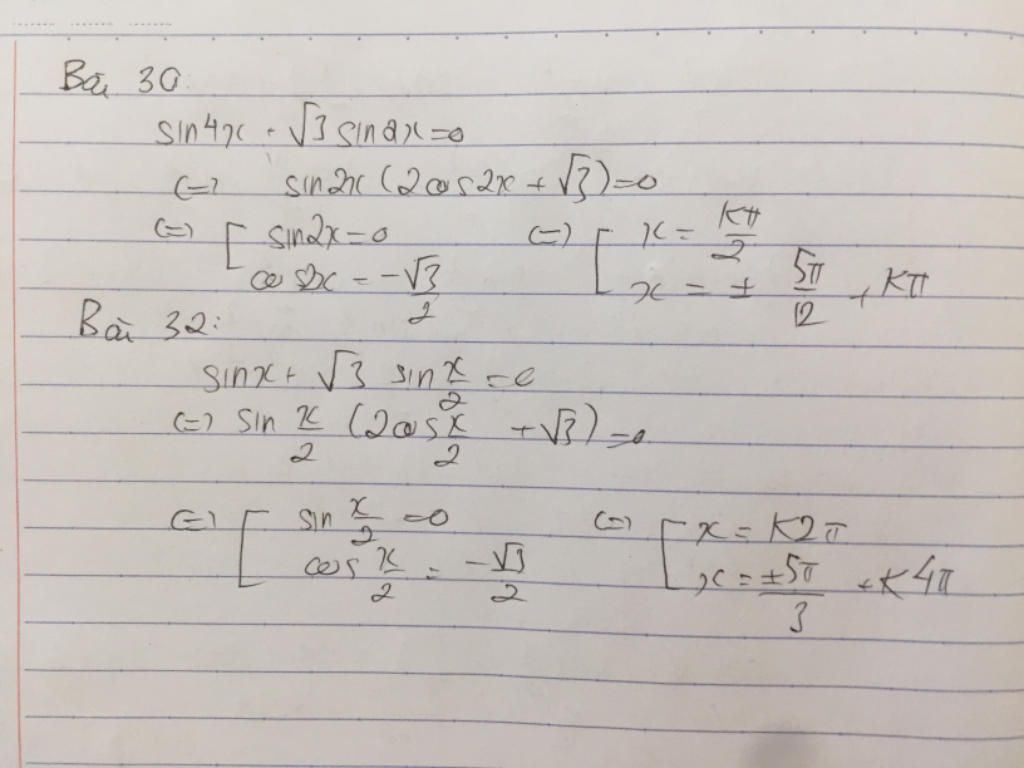 Bài 30:
sin4x + √3 sin2x = 0
(=) sin2x (2cos2x + √3) = 0
(=) [ sin2x = 0 (=) [ x = Kπ/2
cos2x = -√3/2 x = ± 5π/12 + Kπ
Bài 32:
sinx + √3 sin x/2 = 0
(=) sin x/2 (2cos x/2 + √3) = 0
(=) [ sin x/2 = 0 (=) [ x = K2π
cos x/2 = -√3/2 x = ±5π/3 + K4π